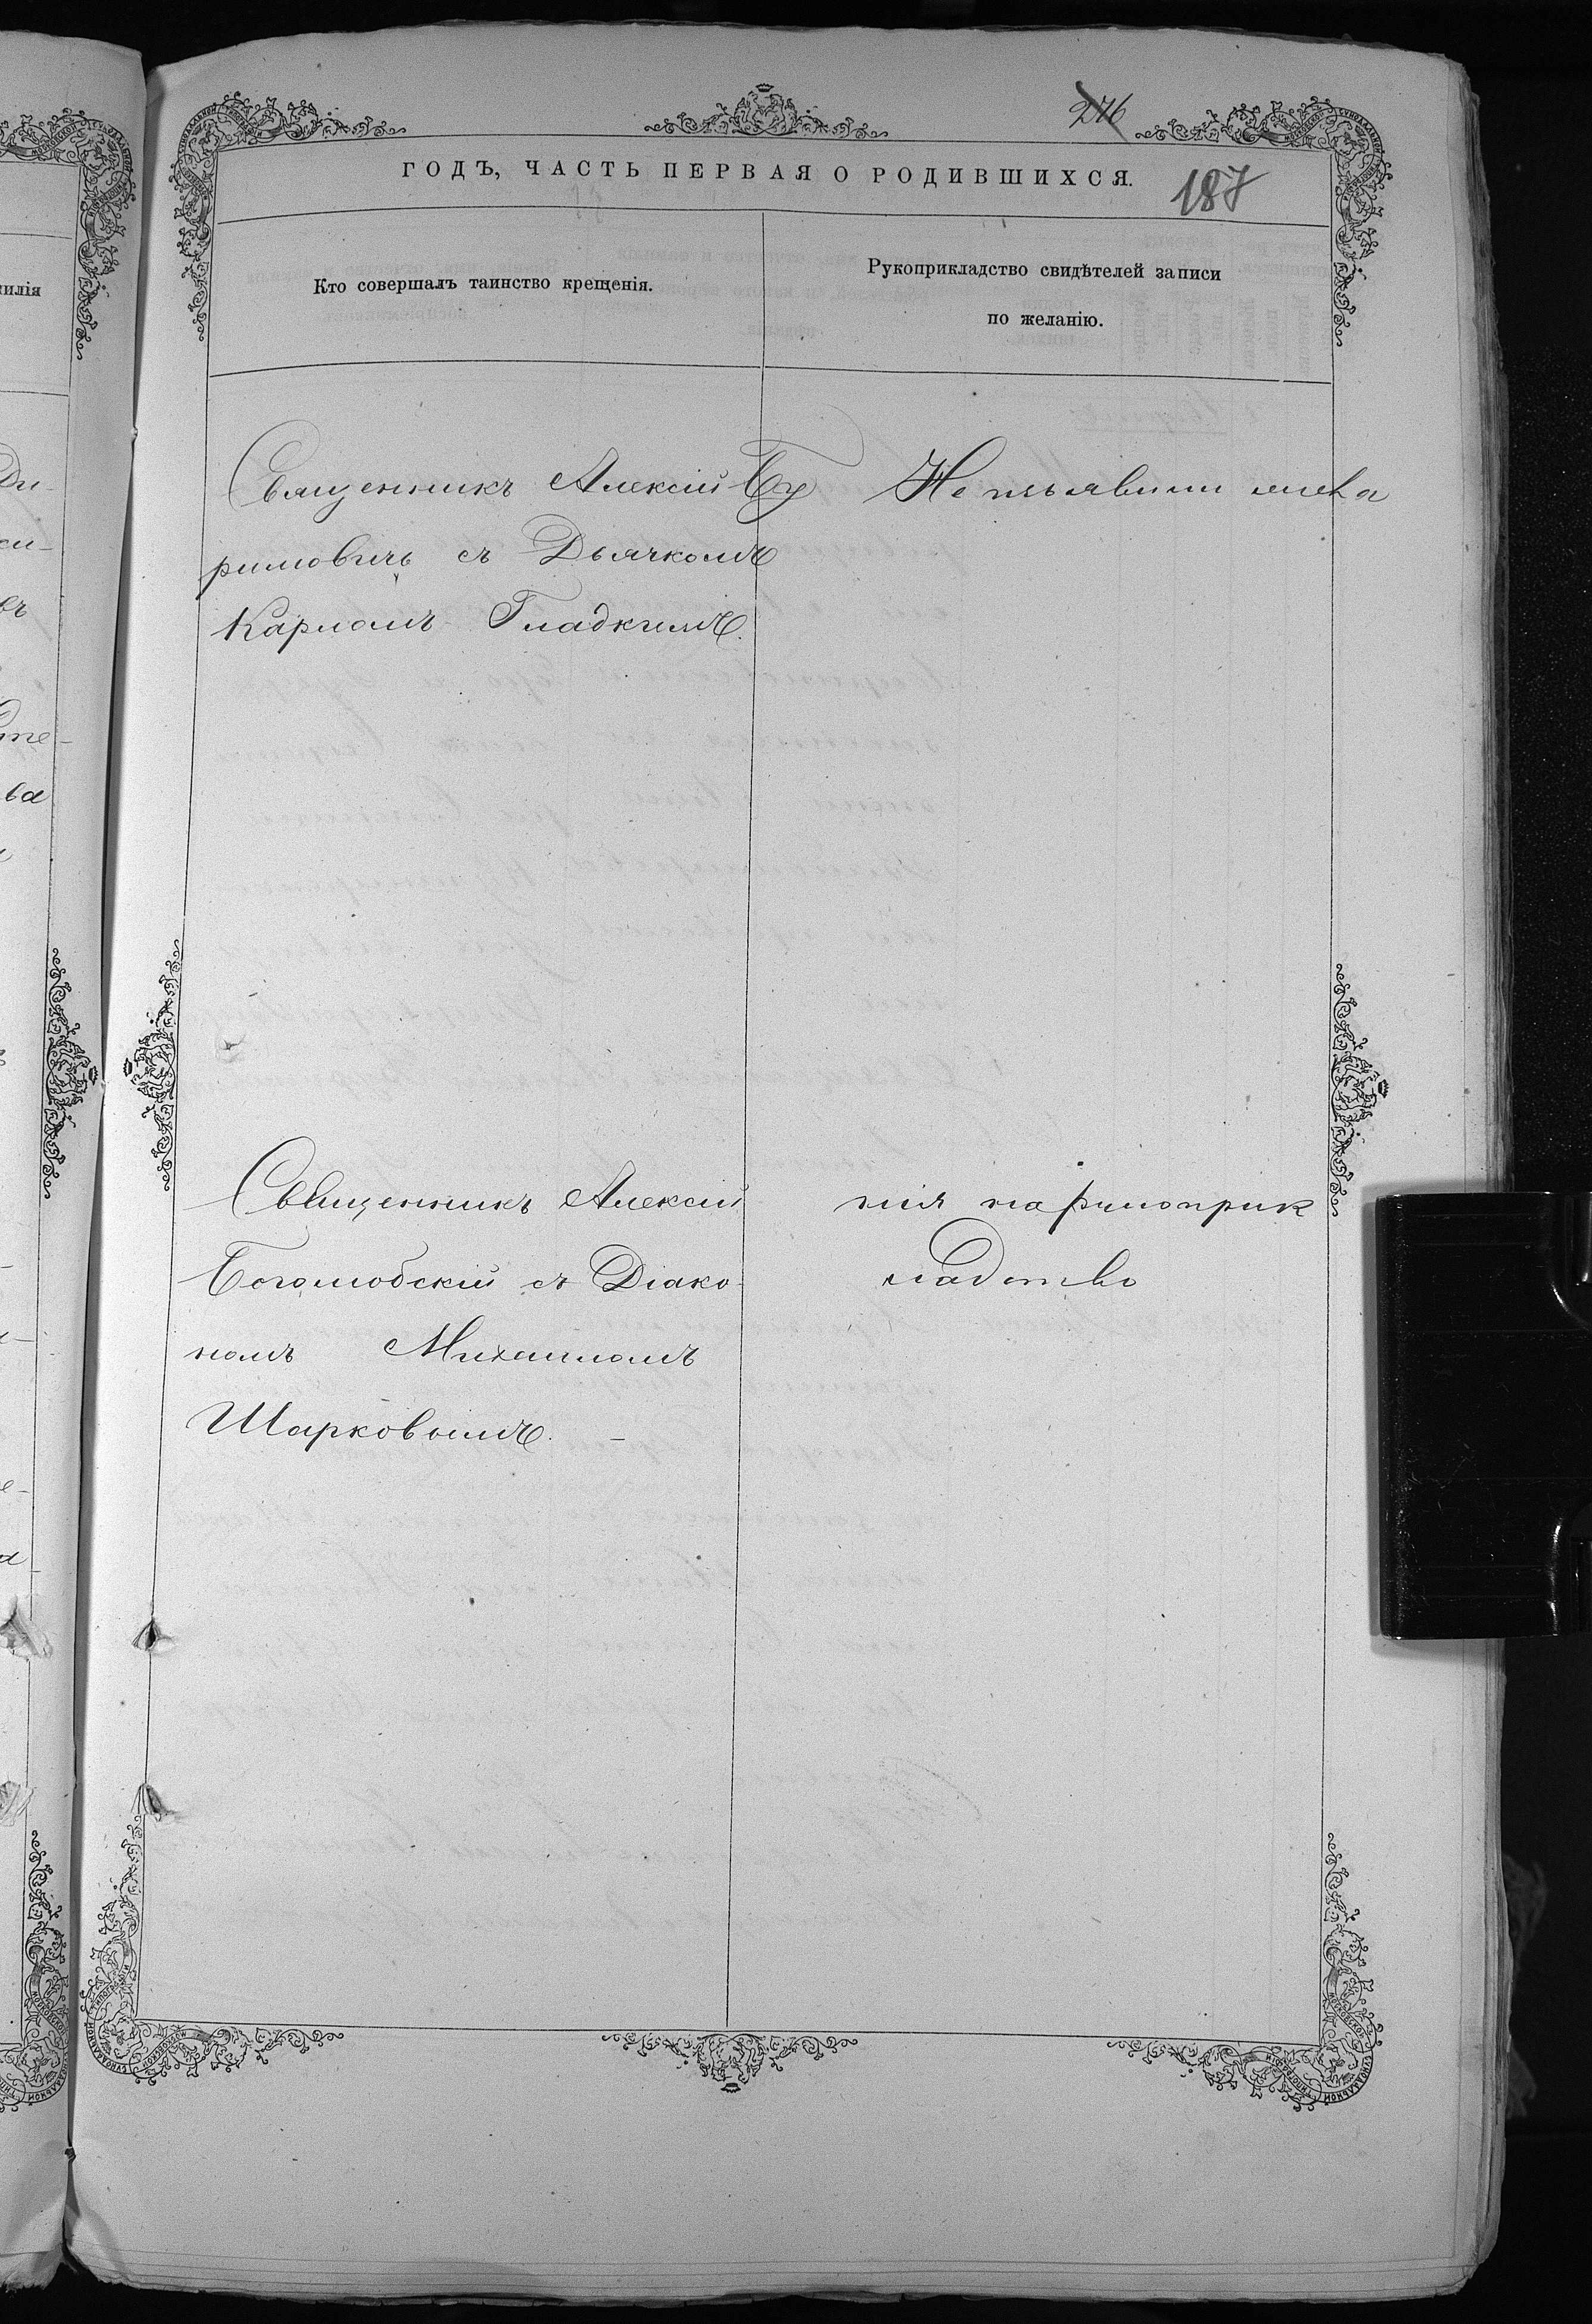 276
ГОДЪ, ЧАСТЬ ПЕРВАЯ О РОДИВШИХСЯ.
187
илія
Кто совершалъ таинство крещенія.
Рукоприкладство свидѣтелей записи
по желанію.
Священникъ Алексій Бу
римовичъ съ Дьячкомъ
Карпомъ Гладкимъ.
Не изъявили жела
Священникъ Алексій
Боголюбскій съ Діако
номъ Михаиломъ
Шарковымъ. –
нія на рукоприк
ладство